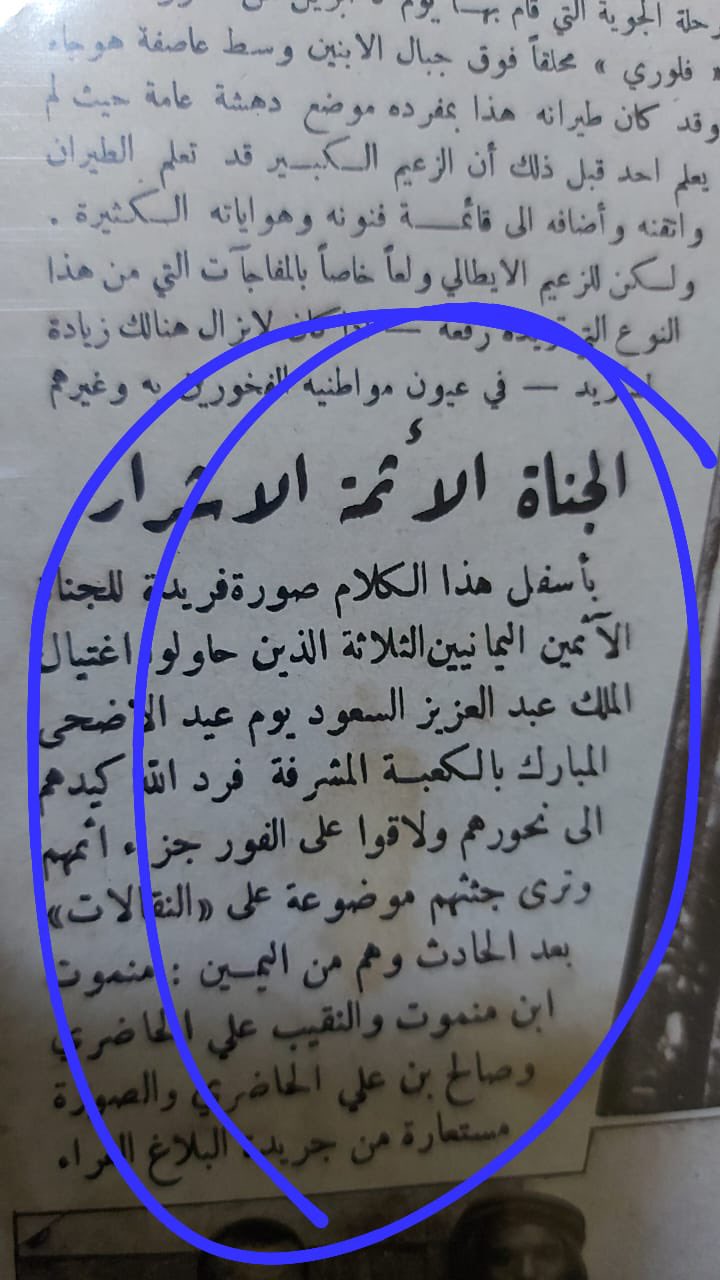 رحلة الجوية التي قام بها يوم
« فلوري » محلقاً فوق جبال الابنين وسط عاصفة هوجاء
وقد كان طيرانه هذا بمفرده موضع دهشة عامة حيث لم
يعلم احد قبل ذلك أن الزعيم الكبير قد تعلم الطيران
واتقنه وأضافه الى قائمة فنونه وهواياته الكثيرة .
ولكن للزعيم الايطالي ولعاً خاصاً بالمفاجآت التي من هذا
النوع التي تزيده رفعة — اذا كان لا يزال هنالك زيادة
لمزيد — في عيون مواطنيه الفخورين به وغيرهم
الجناة الأثمة الاشرار
بأسفل هذا الكلام صورة فريدة للجناة
الآثمين اليمانيين الثلاثة الذين حاولوا اغتيال
الملك عبد العزيز السعود يوم عيد الاضحى
المبارك بالكعبة المشرفة فرد الله كيدهم
الى نحورهم ولاقوا على الفور جزاء اثمهم
وترى جثثهم موضوعة على «النقالات»
بعد الحادث وهم من اليمين : منموت
ابن منموت والنقيب علي الحاضري
وصالح بن علي الحاضري والصورة
مستعارة من جريدة البلاغ الغراء